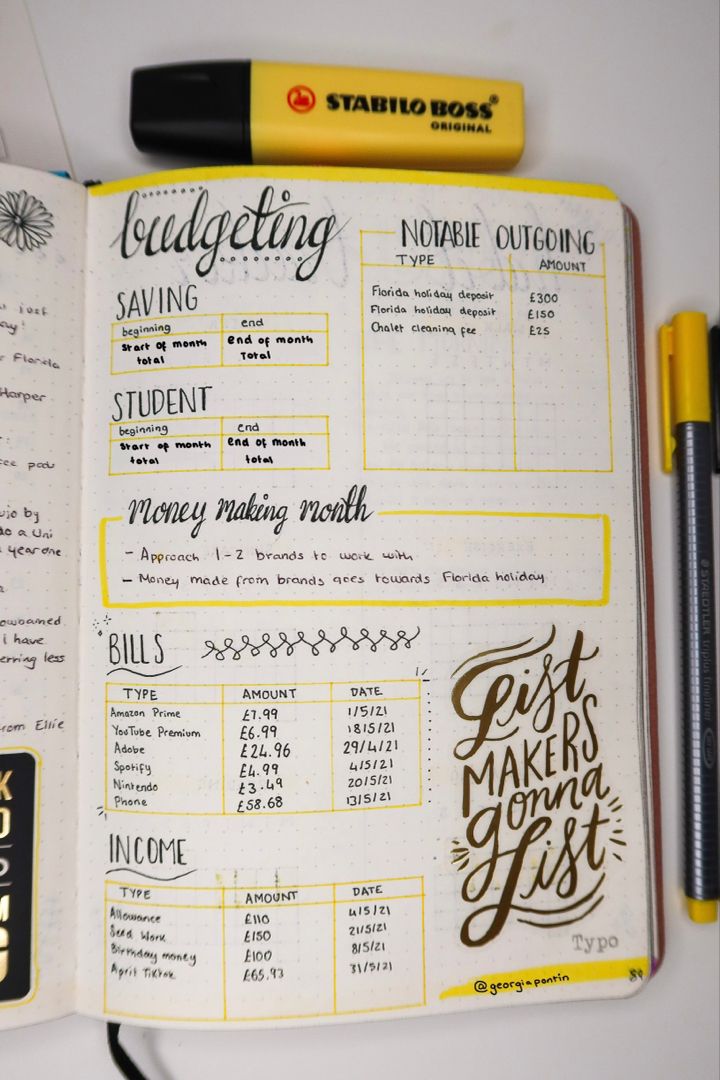 STABILO BOSS®
ORIGINAL
just
ay!
Florida
Harper
:
pods
ujo by
do a Uni
year one
I have
erring less
from Ellie
K
O
M
budgeting
SAVING
beginning end
Start of month total end of month Total
STUDENT
beginning end
Start of month total end of month total
NOTABLE OUTGOING
TYPE AMOUNT
Florida holiday deposit £300
Florida holiday deposit £150
Chalet cleaning fee £25
Money making month
- Approach 1-2 brands to work with
- Money made from brands goes towards Florida holiday
BILLS
TYPE AMOUNT DATE
Amazon Prime £7.99 1/5/21
YouTube Premium £6.99 18/5/21
Adobe £24.96 29/4/21
Spotify £4.99 4/5/21
Nintendo £3.49 20/5/21
Phone £58.68 13/5/21
INCOME
TYPE AMOUNT DATE
Allowance £110 4/5/21
Seed Work £150 21/5/21
Birthday money £100 8/5/21
April TikTok £65.93 31/5/21
List
MAKERS
gonna
List
Typo
@georgiapontin
89
STAEDTLER triplus fineliner